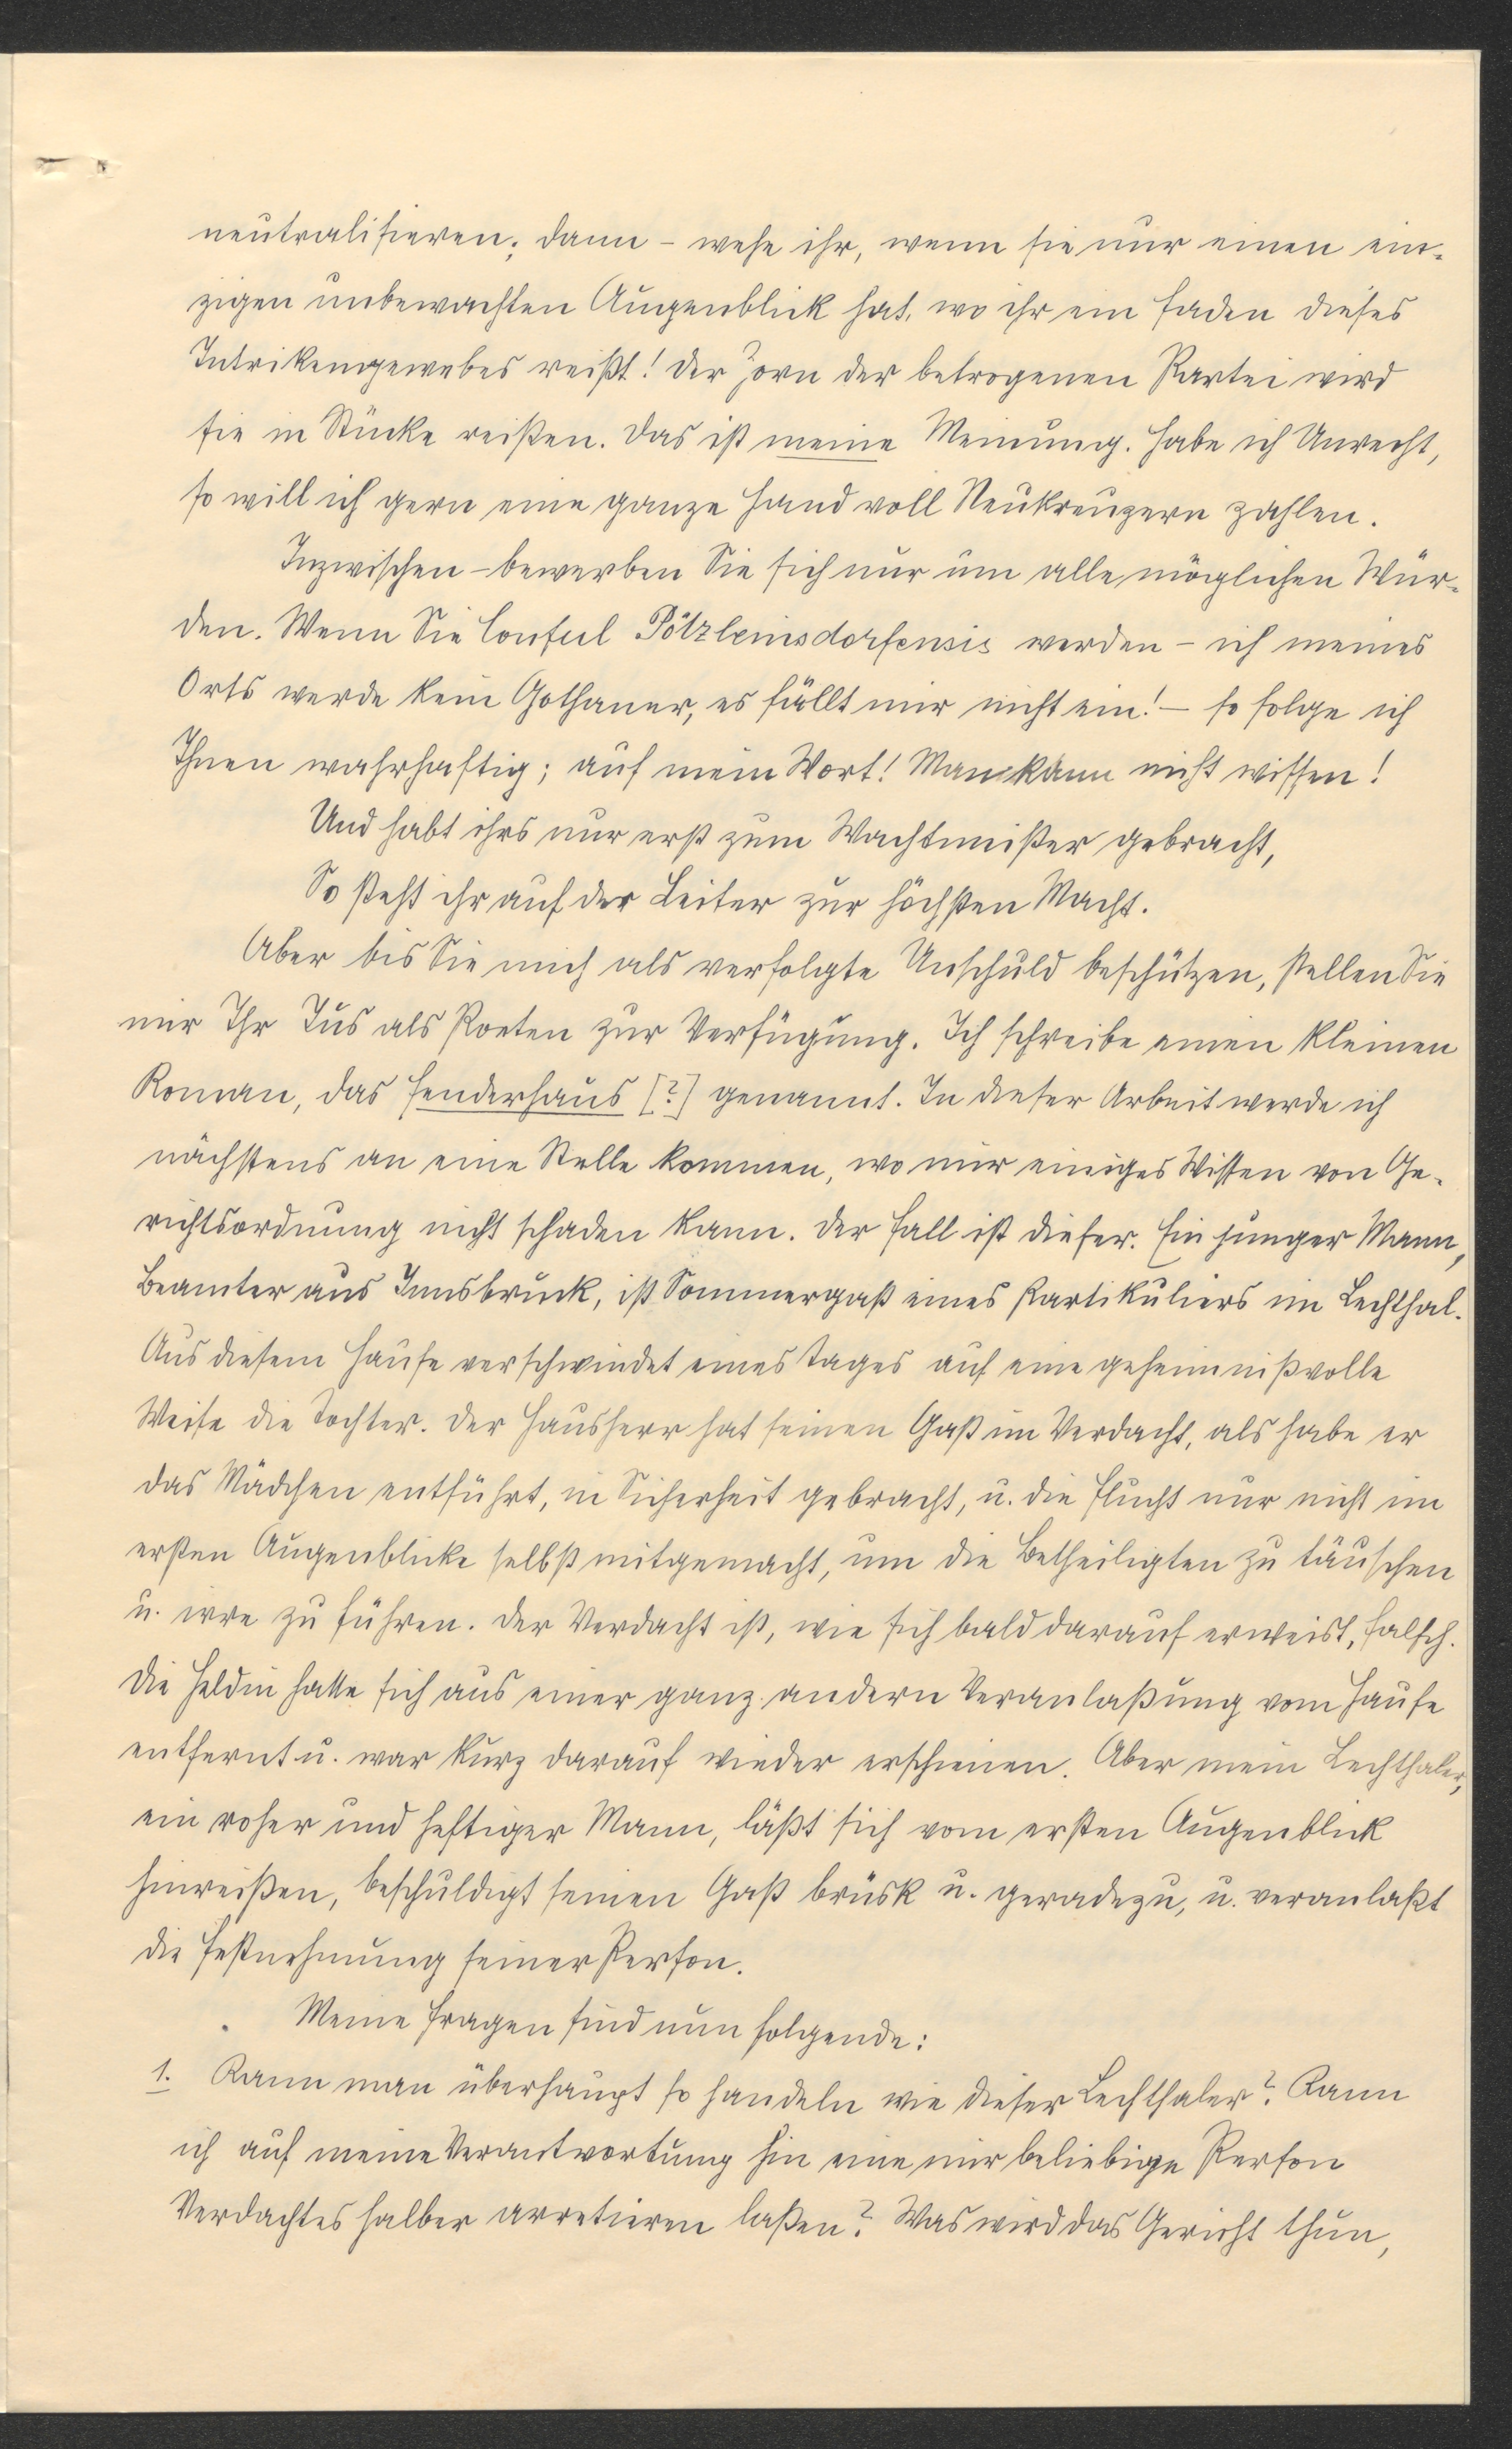 neutralisieren; dann – wehe ihr, wenn sie nur einen ein-
zigen unbewachten Augenblick hat, wo ihr ein Faden dieses
Intrikengewebes reißt! Der Zorn der betrogenen Partei wird
sie in Stücke reißen. Das ist meine Meinung. Habe ich Unrecht,
so will ich gern eine ganze Hand voll Neukreuzern zahlen.
Inzwischen – bewerben Sie sich nur um alle möglichen Wür-
den. Wenn Sie Consul Pötzleinsdorfensis werden – ich meines
Orts werde kein Gothaner, es fällt mir nicht ein! – so folge ich
Ihnen wahrhaftig; auf mein Wort! Man kann nicht wissen!
Und habt ihrs nur erst zum Wachtmeister gebracht,
So steht ihr auf der Leiter zur höchsten Macht.
Aber bis Sie mich als verfolgte Unschuld beschützen, stellen Sie
mir Ihr Jus als Poeten zur Verfügung. Ich schreibe einen kleinen
Roman, das Fenderhaus [?] genannt. In dieser Arbeit werde ich
nächstens an eine Stelle kommen, wo mir einiges Wissen von Ge-
richtsordnung nicht schaden kann. Der Fall ist dieser. Ein junger Mann,
Beamter aus Innsbruck, ist Sommergast eines Partikuliers im Lechthal.
Aus diesem Hause verschwindet eines Tages auf eine geheimnißvolle
Weise die Tochter. Der Hausherr hat seinen Gast im Verdacht, als habe er
das Mädchen entführt, in Sicherheit gebracht, u. die Flucht nur nicht im
ersten Augenblicke selbst mitgemacht, um die Betheiligten zu täuschen
u. irre zu führen. Der Verdacht ist, wie sich bald darauf erweist, falsch.
Die Heldin hatte sich aus einer ganz andern Veranlaßung vom Hause
entfernt u. war kurz darauf wieder erschienen. Aber mein Lechthaler,
ein roher und heftiger Mann, läßt sich vom ersten Augenblick
hinreißen, beschuldigt seinen Gast brüsk u. geradezu, u. veranlaßt
die Festnehmung seiner Person.
Meine Fragen sind nun folgende:
1. Kann man überhaupt so handeln wie dieser Lechthaler? Kann
ich auf meine Verantwortung hin eine mir beliebige Person
Verdachtes halber arretieren laßen? Was wird das Gericht thun,